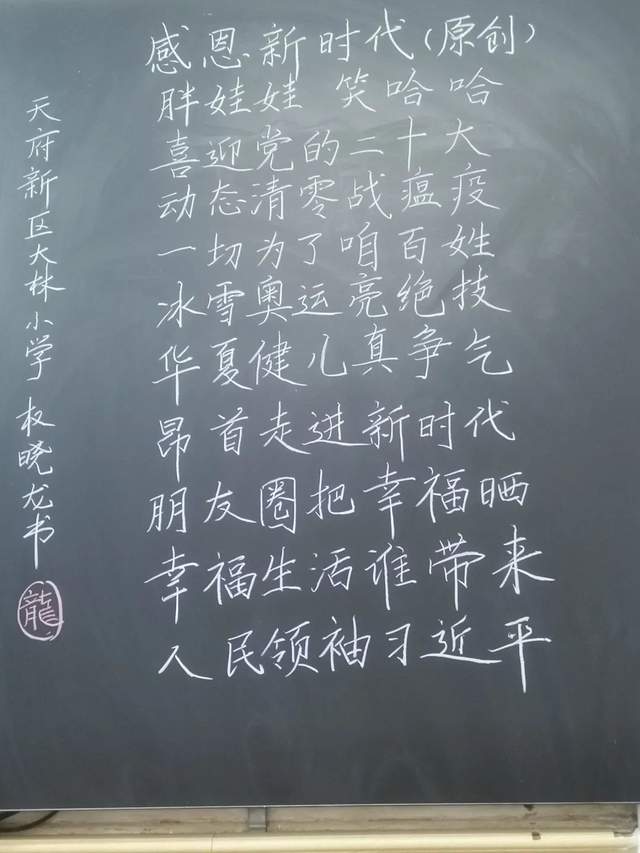 感恩新时代(原创)
胖娃娃 笑哈哈
喜迎党的二十大
动态清零战瘟疫
一切为了咱百姓
冰雪奥运亮绝技
华夏健儿真争气
昂首走进新时代
朋友圈把幸福晒
幸福生活谁带来
人民领袖习近平
天府新区大林小学 权晓龙书
龍